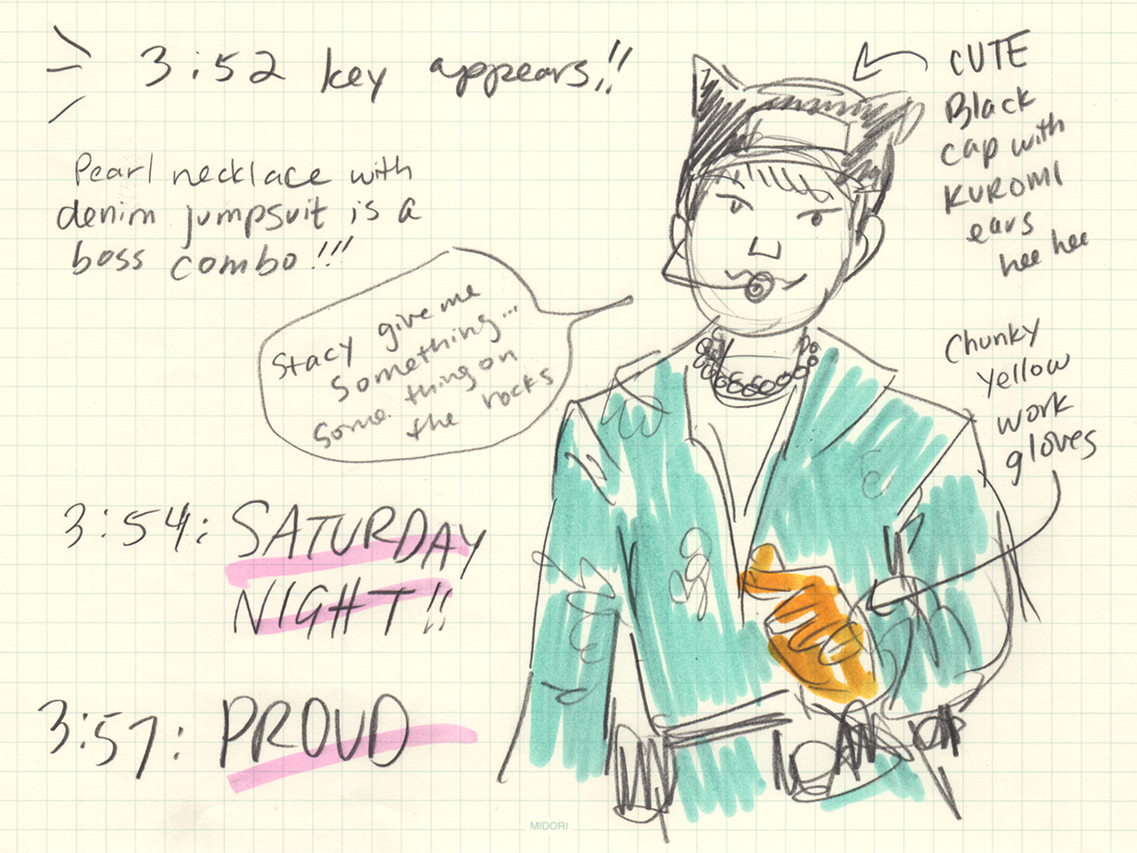 3:52 key appears!!
Pearl necklace with
denim jumpsuit is a
boss combo!!!
CUTE
Black
cap with
KUROMI
ears
hee hee
Stacy give me
something...
some thing on
the rocks
Chunky
yellow
work
gloves
3:54: SATURDAY
NIGHT!!
3:57: PROUD
MIDORI